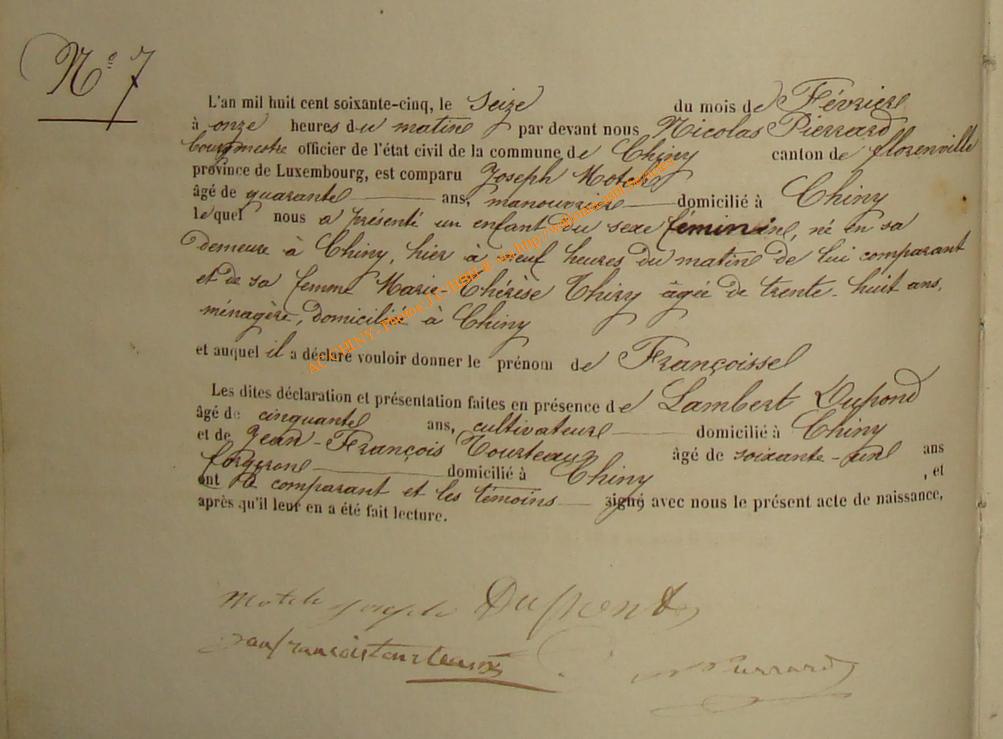 N° 7
L'an mil huit cent soixante-cinq, le Seize du mois de Février
à onze heures du matin par devant nous Nicolas Pierrard
bourgmestre officier de l'état civil de la commune de Chiny canton de florenville
province de Luxembourg, est comparu Joseph Motch
âgé de quarante ans, manouvrier domicilié à Chiny
lequel nous a présenté un enfant du sexe féminin, né en sa
demeure à Chiny, hier à neuf heures du matin de lui comparant
et de sa femme Marie-Thérèse Thiry âgée de trente-huit ans,
ménagère, domiciliée à Chiny
et auquel il a déclaré vouloir donner le prénom de Françoise
Les dites déclaration et présentation faites en présence de Lambert Dupond
âgé de cinquante ans, cultivateur domicilié à Chiny
et de Jean-François Tourteaux âgé de soixante-un ans
forgeron domicilié à Chiny, et
ont le comparant et les témoins signé avec nous le présent acte de naissance,
après qu'il leur en a été fait lecture.
Motch joseph Dupont
jean francois tourteaux N Pierrard